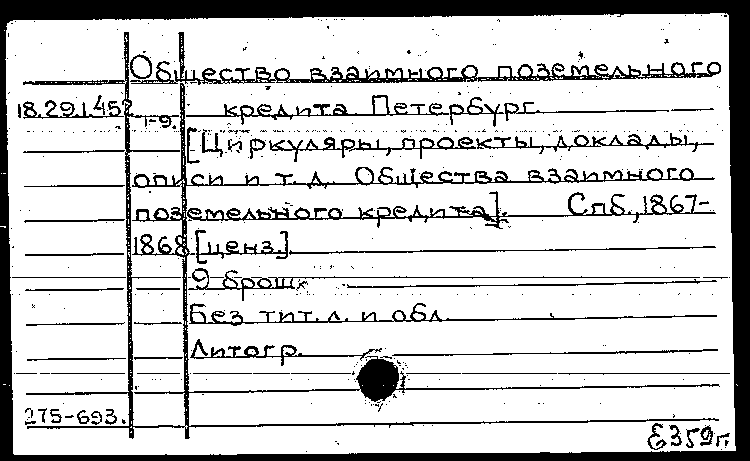 Общество взаимного поземельного
18.29.1.45² 1-9. кредита Петербург.
[Циркуляры, проекты, доклады,
описи и т.д. Общества взаимного
поземельного кредита]. Спб., 1867-
1868 [ценз.]
9 брош.
Без тит. л. и обл.
Литогр.
275-693.
Е359п